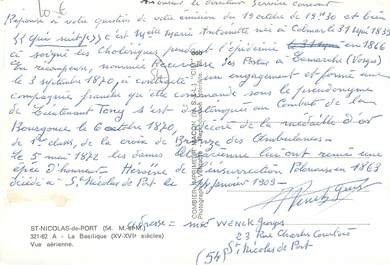 10 €
Monsieur le directeur Service concours
Réponse à votre question de votre émission du 19 octobre de 19h30 et bien
(( qui suit je )) c'est Melle Marie Antoinette née à Colmar le 31 mai 1833
à soigné les cholériques pendant l'épidémie 1866
en récompense, nommée Receveuse des Postes à Lamarche (Vosges)
le 3 septembre 1870, à contracté un engagement et formé une
compagnie franche qu'elle commande sous le pseudonyme
de Lieutenant Tony s'est distinguée au Combat de la
Bourgonce le 6 octobre 1870, décoré de la médaille d'or
de 1er class, de la croix de Bronze des Ambulances
le 5 mai 1872 les dames lui ont remis une
épée d'honneur Héroïne de l'insurrection Polonaise en 1863
décédé à St Nicolas de Port le 14 janvier 1909
COMBIER IMPRIMEUR MACON (S.-&-L.) "CIM"
ST-NICOLAS-de-PORT (54. M.-et-M.)
321-62 A - La Basilique (XV-XVIe siècles)
Vue aérienne.
adresse = Mr WENCK Georges
23 Rue Charles Courtois
St Nicolas de Port
(54